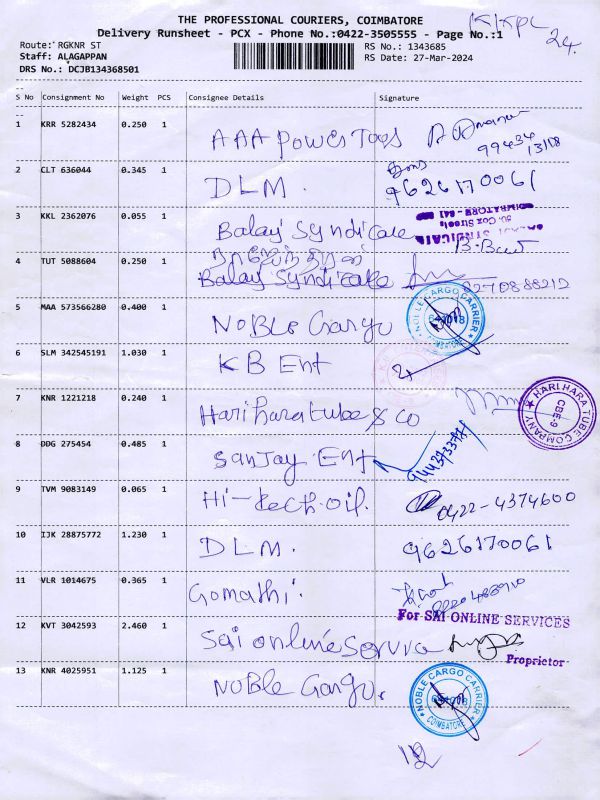 THE PROFESSIONAL COURIERS, COIMBATORE
Delivery Runsheet - PCX - Phone No.:0422-3505555 - Page No.:1
24.
Route: RGKNR ST RS No.: 1343685
Staff: ALAGAPPAN RS Date: 27-Mar-2024
DRS No.: DCJB134368501
S No Consignment No Weight PCS Consignee Details Signature
1 KRR 5282434 0.250 1 AAA Power Tools
99434
2 CLT 636044 0.345 1 DLM. 9626170061
3 KKL 2362076 0.055 1 Balaji Syndicate
4 TUT 5088604 0.250 1 Balaji Syndicate
5 MAA 573566280 0.400 1 NoBle Cargo NOBLE CARGO CARRIER COIMBATORE
6 SLM 342545191 1.030 1 KB Ent
7 KNR 1221218 0.240 1 Hari Hara tube & co HARI HARA TUBE COMPANY CBE-9
8 DDG 275454 0.485 1 Sanjay Ent
9 TVM 9083149 0.065 1 Hi-tech-oil. 0422-4374600
10 IJK 28875772 1.230 1 DLM. 9626170061
11 VLR 1014675 0.365 1 Gomathi.
For SAI ONLINE SERVICES
12 KVT 3042593 2.460 1 Sai online Service
Proprietor
13 KNR 4025951 1.125 1 NoBle Cargo. NOBLE CARGO CARRIER COIMBATORE